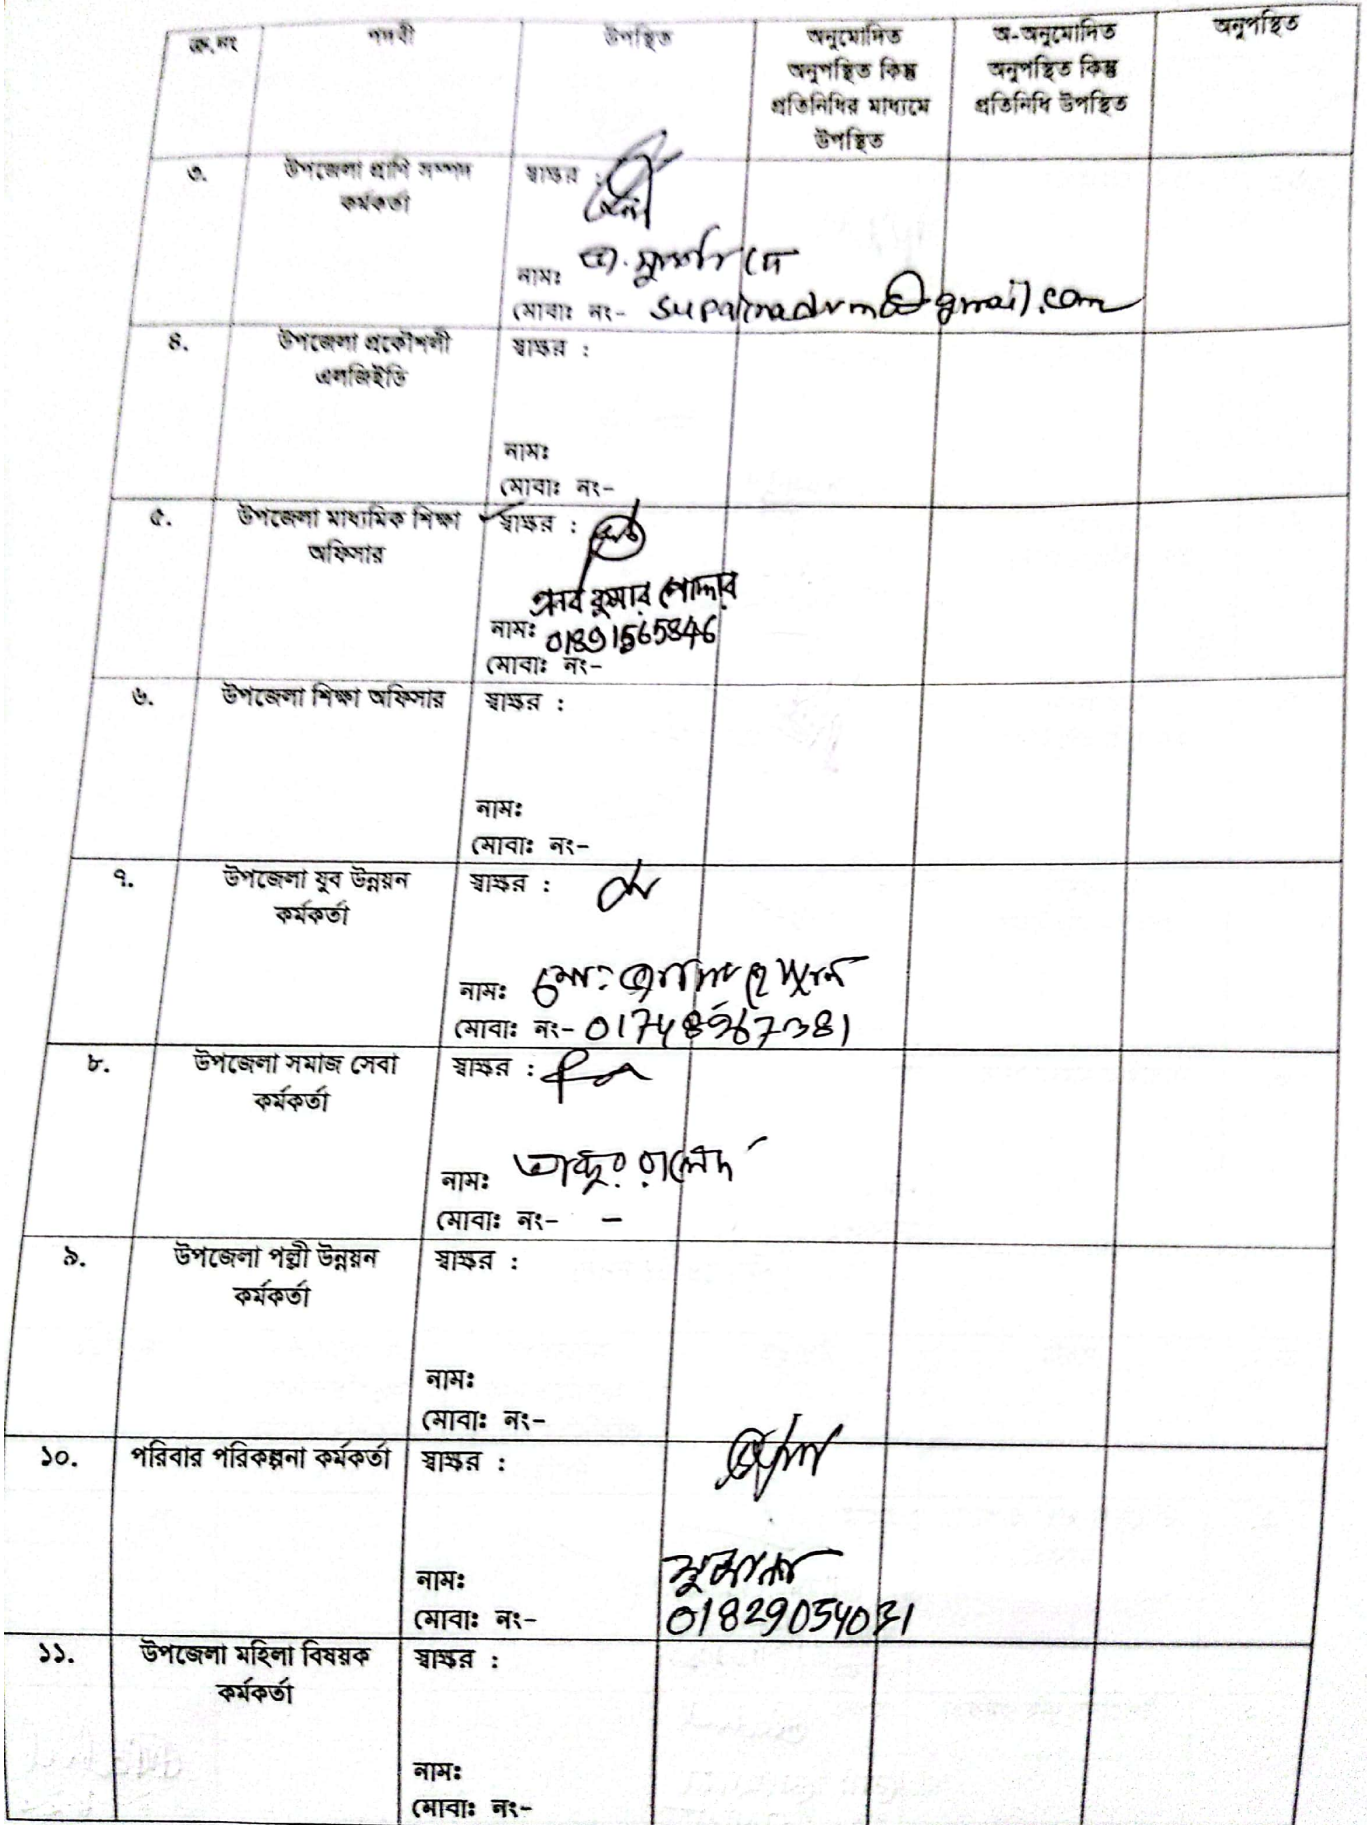 ক্র.নং পদবী উপস্থিত অনুমোদিত অনুপস্থিত কিন্তু প্রতিনিধির মাধ্যমে উপস্থিত অ-অনুমোদিত অনুপস্থিত কিন্তু প্রতিনিধি উপস্থিত অনুপস্থিত
৩. উপজেলা প্রাণি সম্পদ কর্মকর্তা স্বাক্ষর :
নামঃ ডা. সুপর্ণা দে
মোবাঃ নং- suparnadvm@gmail.com
৪. উপজেলা প্রকৌশলী এলজিইডি স্বাক্ষর :
নামঃ
মোবাঃ নং-
৫. উপজেলা মাধ্যমিক শিক্ষা অফিসার স্বাক্ষর :
প্রনব কুমার পোদ্দার
নামঃ 01891565846
মোবাঃ নং-
৬. উপজেলা শিক্ষা অফিসার স্বাক্ষর :
নামঃ
মোবাঃ নং-
৭. উপজেলা যুব উন্নয়ন কর্মকর্তা স্বাক্ষর :
নামঃ মোঃ
মোবাঃ নং- 01748967381
৮. উপজেলা সমাজ সেবা কর্মকর্তা স্বাক্ষর :
নামঃ
মোবাঃ নং- –
৯. উপজেলা পল্লী উন্নয়ন কর্মকর্তা স্বাক্ষর :
নামঃ
মোবাঃ নং-
১০. পরিবার পরিকল্পনা কর্মকর্তা স্বাক্ষর :
নামঃ
মোবাঃ নং- 01829054031
১১. উপজেলা মহিলা বিষয়ক কর্মকর্তা স্বাক্ষর :
নামঃ
মোবাঃ নং-